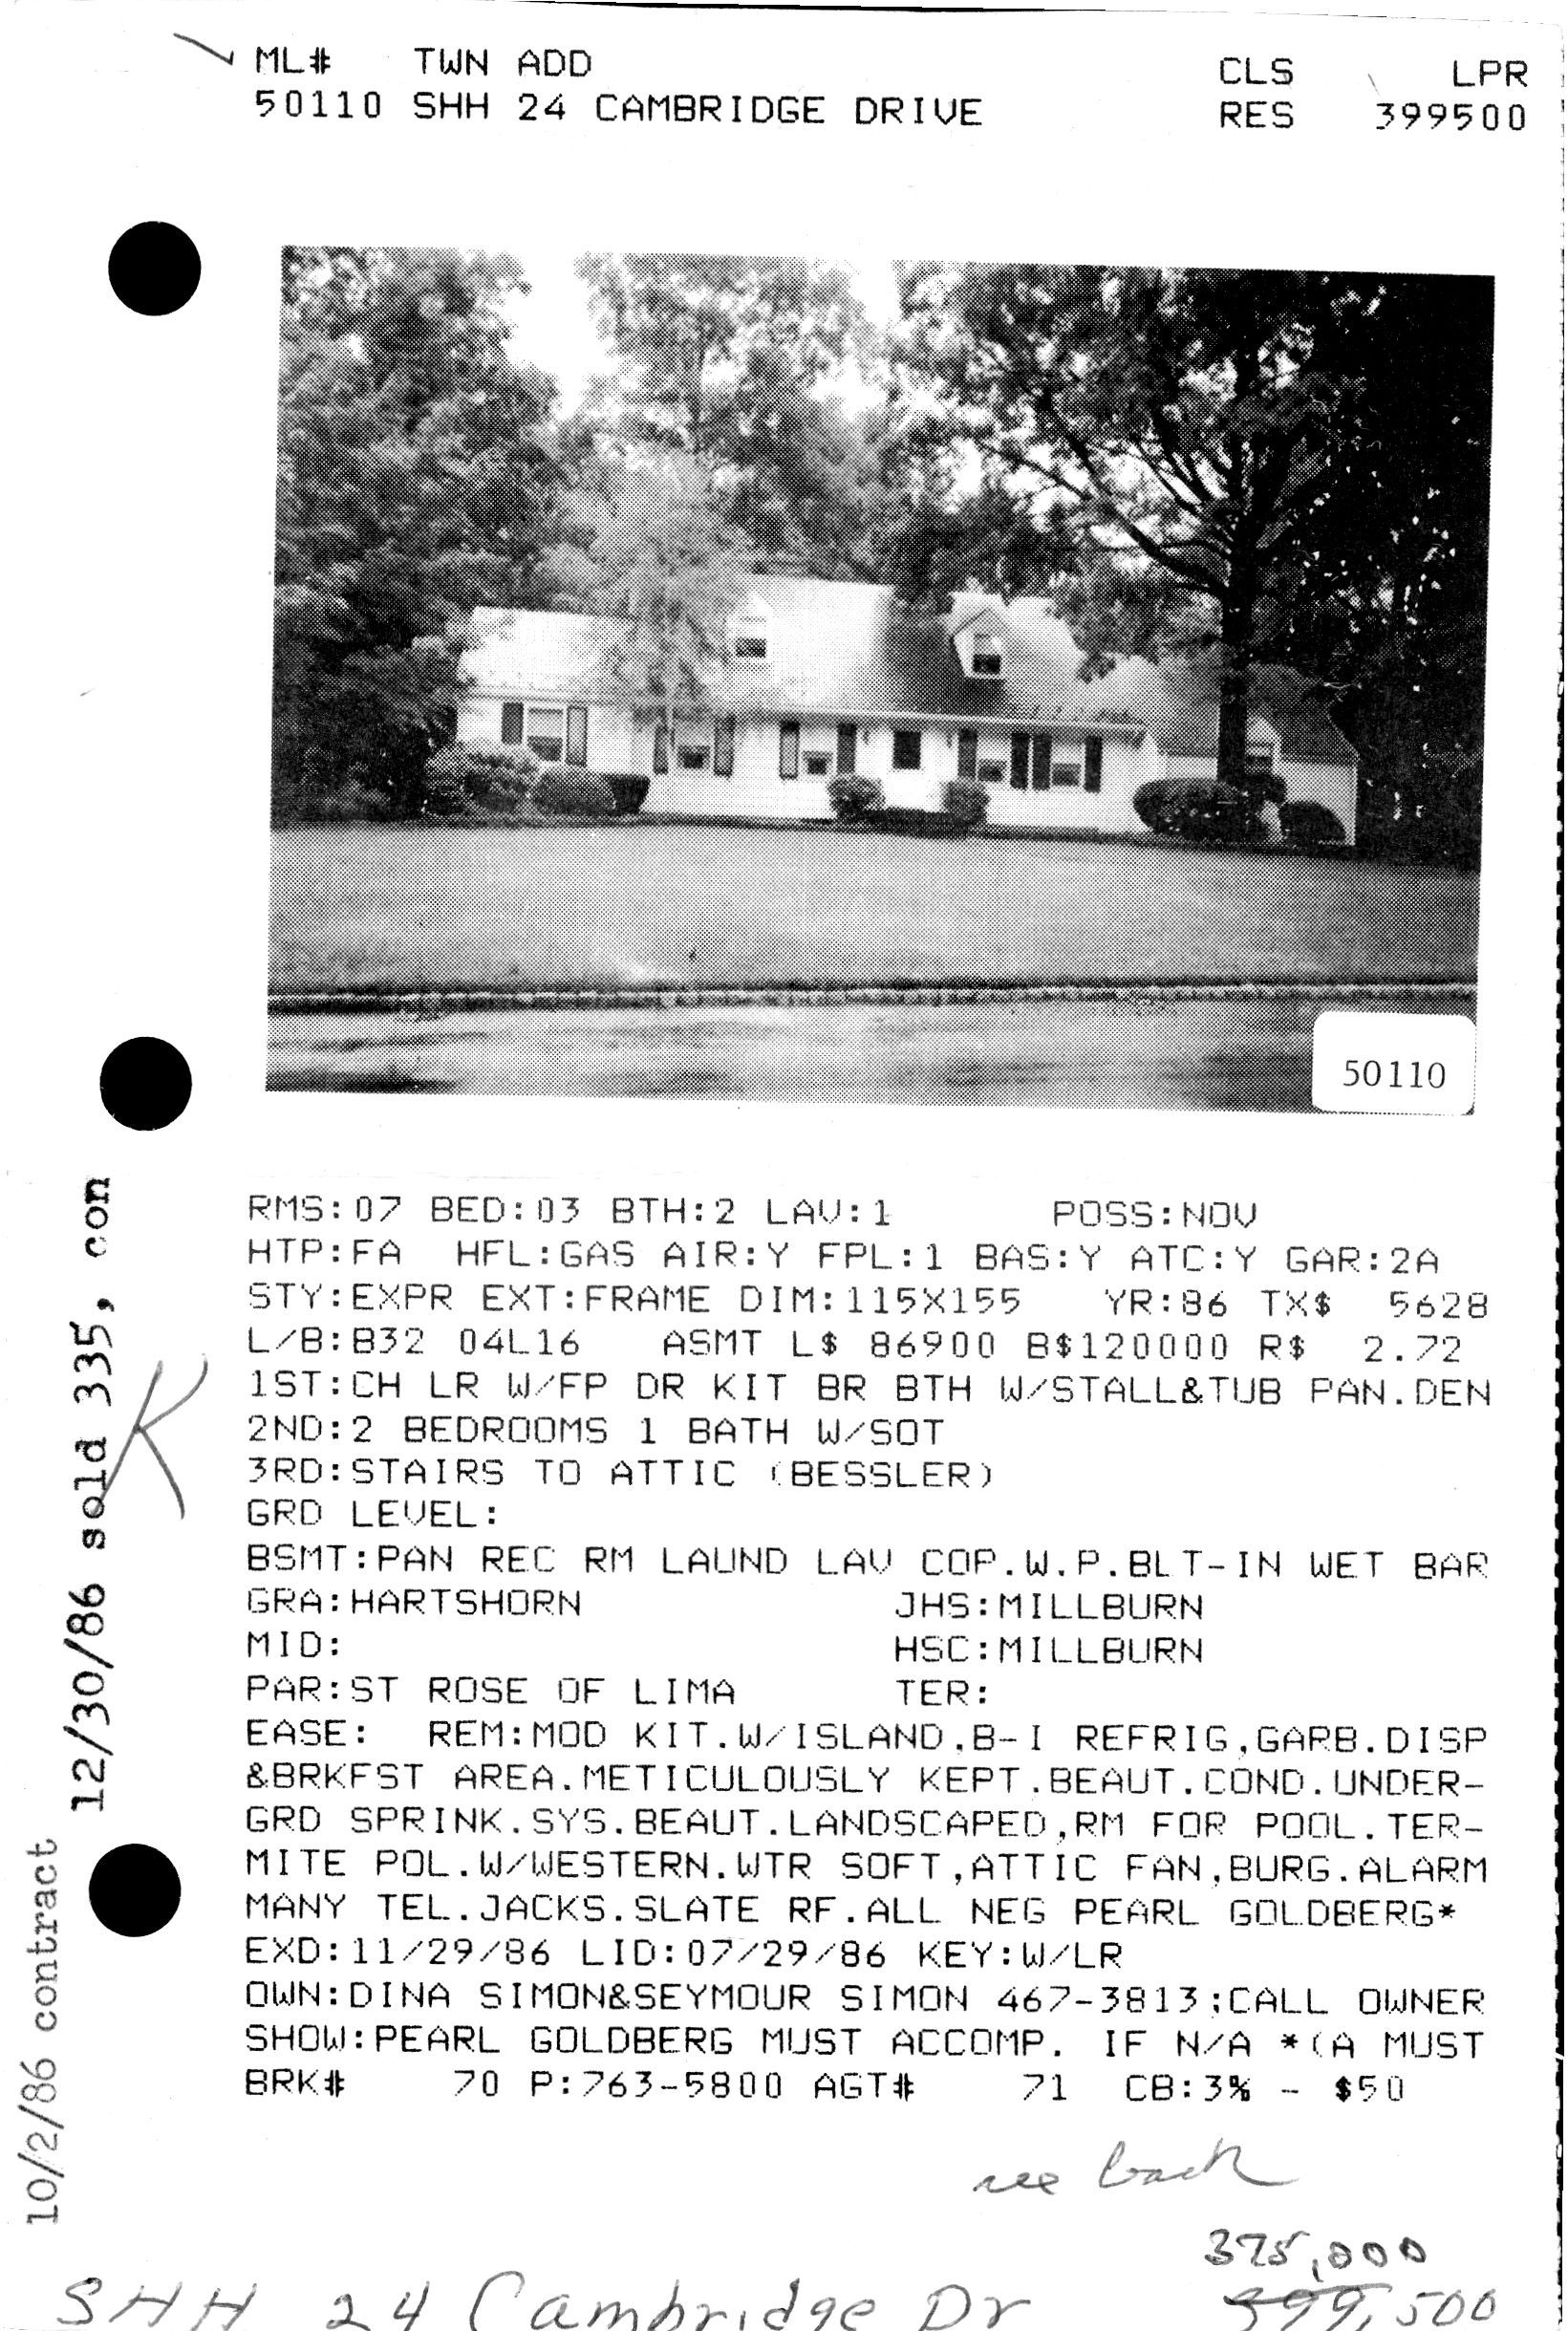 ML# TWN ADD CLS LPR
50110 SHH 24 CAMBRIDGE DRIVE RES 399500
50110
RMS:07 BED:03 BTH:2 LAV:1 POSS:NOV
HTP:FA HFL:GAS AIR:Y FPL:1 BAS:Y ATC:Y GAR:2A
STY:EXPR EXT:FRAME DIM:115X155 YR:86 TX$ 5628
L/B:B32 04L16 ASMT L$ 86900 B$120000 R$ 2.72
1ST:CH LR W/FP DR KIT BR BTH W/STALL&TUB PAN.DEN
2ND:2 BEDROOMS 1 BATH W/SOT
3RD:STAIRS TO ATTIC (BESSLER)
GRD LEVEL:
BSMT:PAN REC RM LAUND LAV COP.W.P.BLT-IN WET BAR
GRA:HARTSHORN JHS:MILLBURN
MID: HSC:MILLBURN
PAR:ST ROSE OF LIMA TER:
EASE: REM:MOD KIT.W/ISLAND,B-I REFRIG,GARB.DISP
&BRKFST AREA.METICULOUSLY KEPT.BEAUT.COND.UNDER-
GRD SPRINK.SYS.BEAUT.LANDSCAPED,RM FOR POOL.TER-
MITE POL.W/WESTERN.WTR SOFT,ATTIC FAN,BURG.ALARM
MANY TEL.JACKS.SLATE RF.ALL NEG PEARL GOLDBERG*
EXD:11/29/86 LID:07/29/86 KEY:W/LR
OWN:DINA SIMON&SEYMOUR SIMON 467-3813;CALL OWNER
SHOW:PEARL GOLDBERG MUST ACCOMP. IF N/A *(A MUST
BRK# 70 P:763-5800 AGT# 71 CB:3% - $50
see back
375,000
SHH 24 Cambridge Dr 399,500
10/2/86 contract
12/30/86 sold 335, con
K